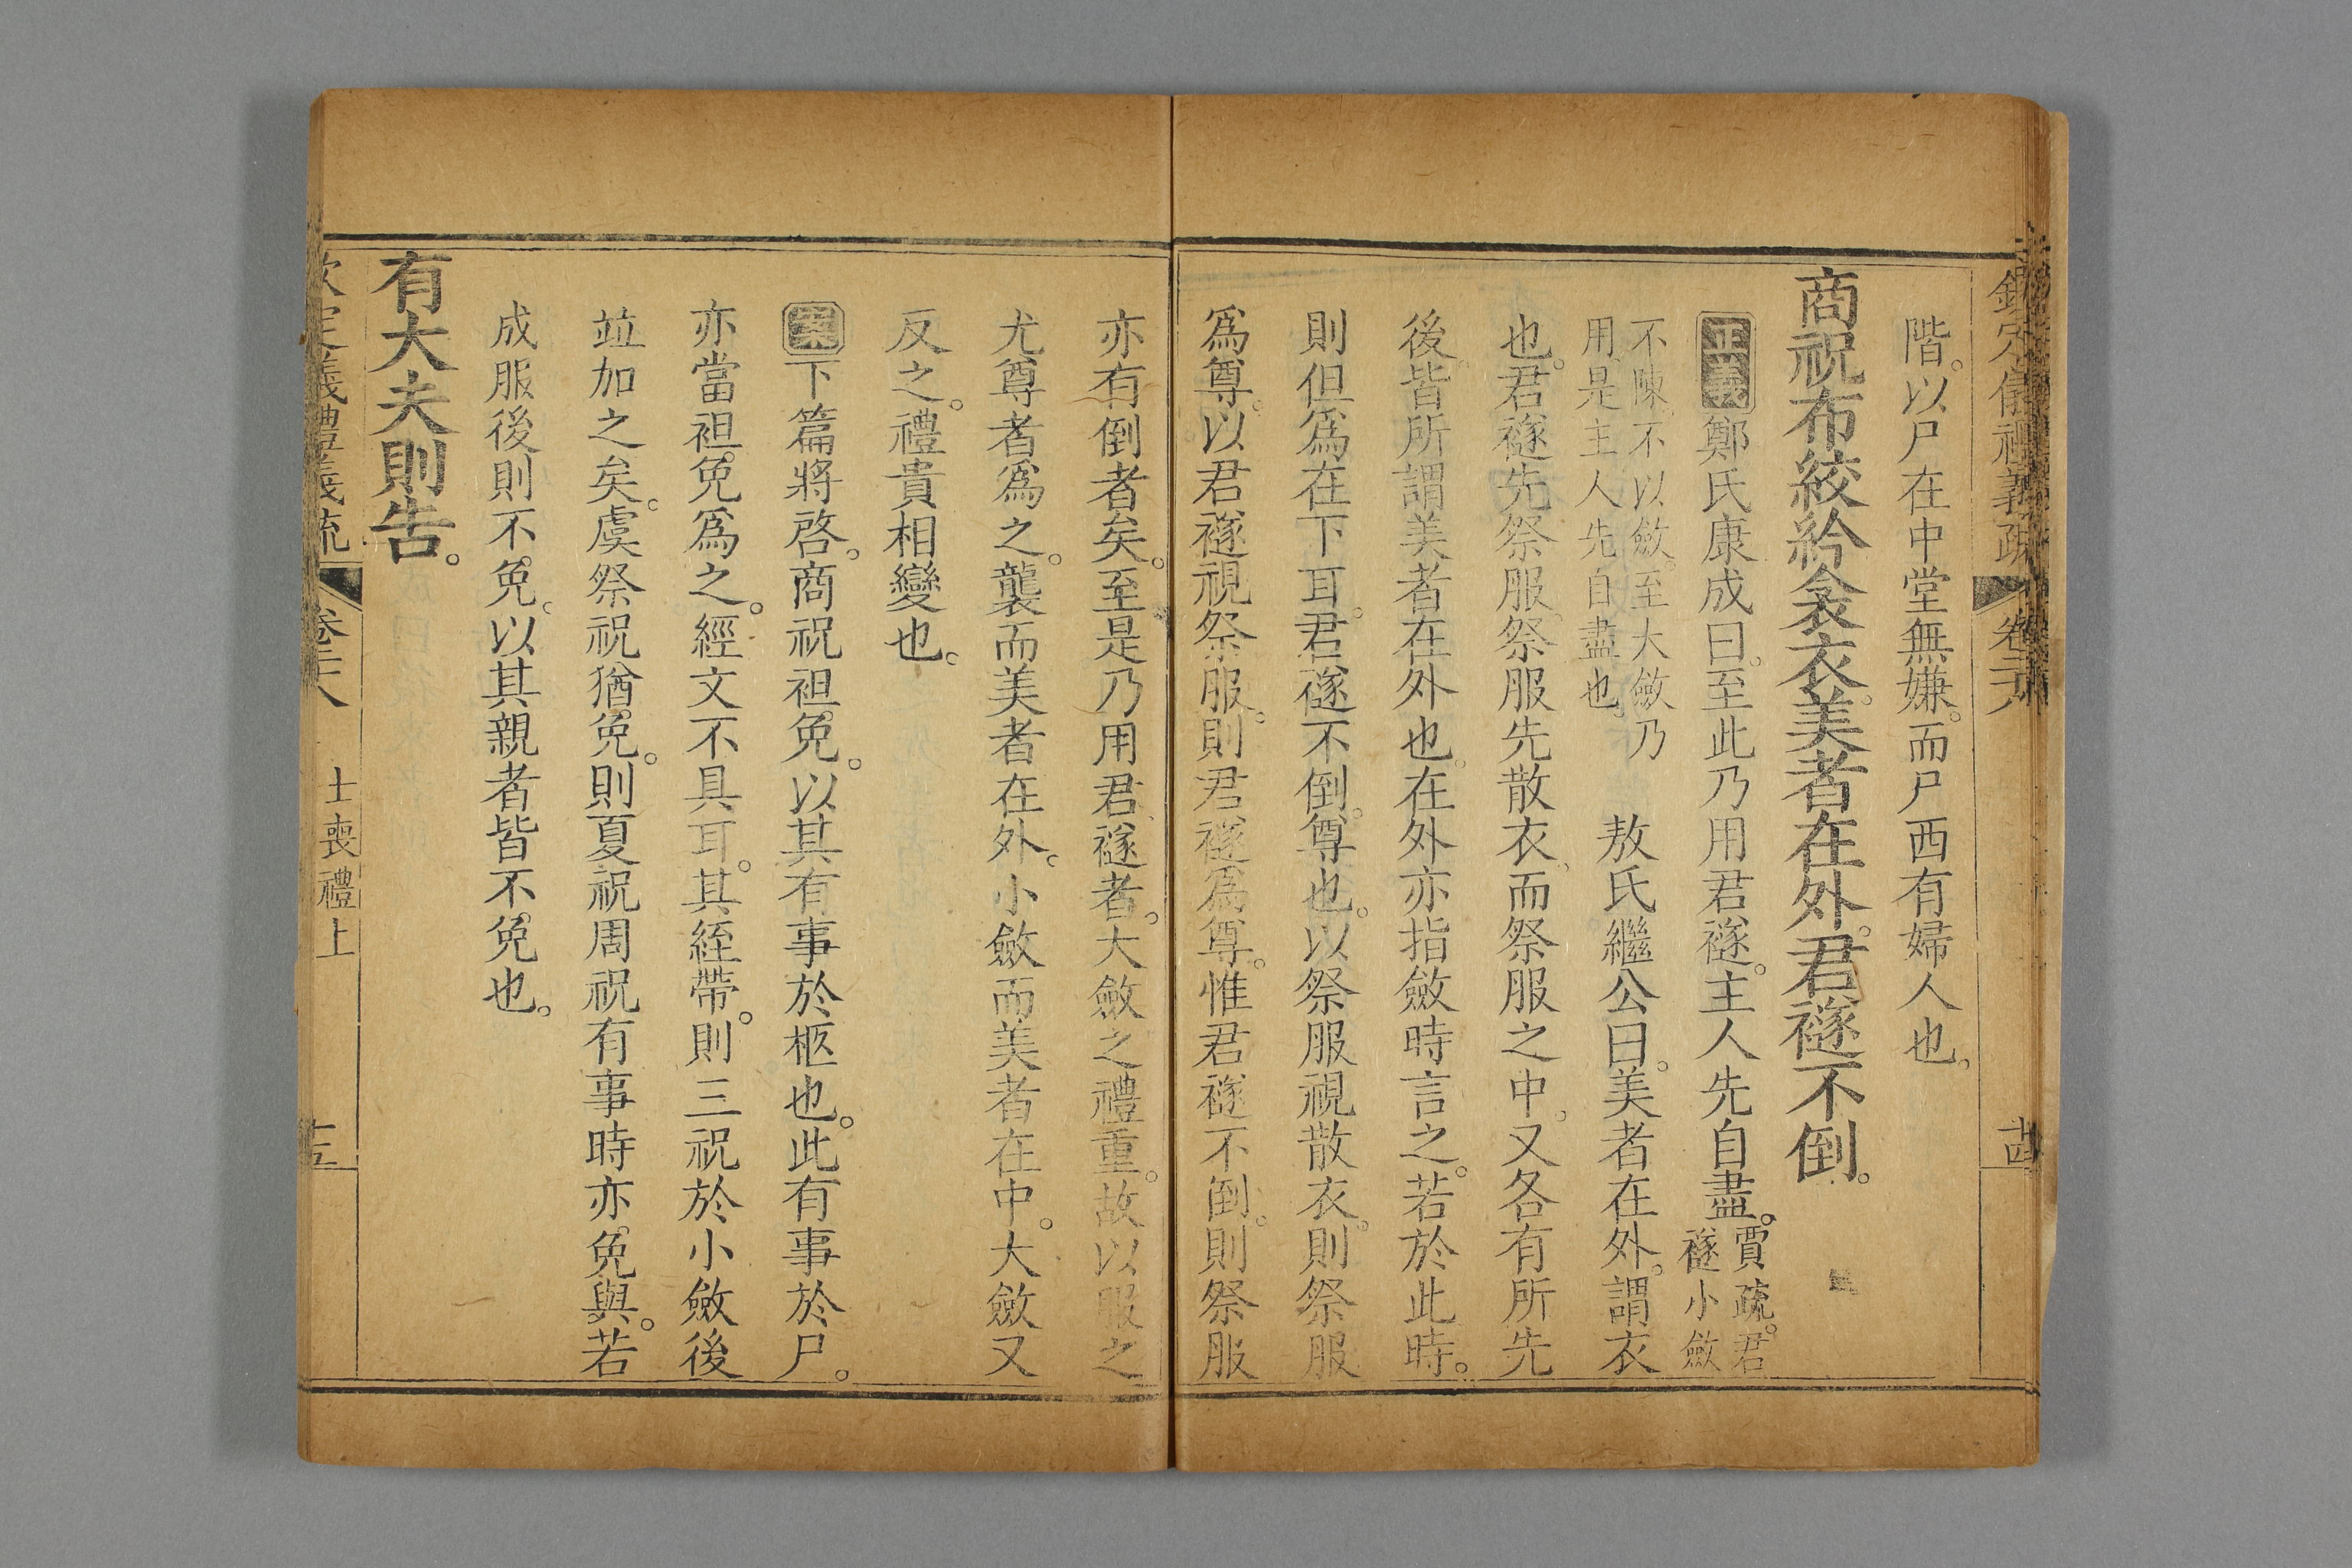 欽定儀禮義疏 卷二十八 十四
階。以尸在中堂無嫌。而尸西有婦人也。
商祝布絞紟衾衣。美者在外。君襚不倒。
正義 鄭氏康成曰。至此乃用君襚。主人先自盡。賈疏。君襚小斂
不陳。不以斂。至大斂乃用。是主人先自盡也。 敖氏繼公曰。美者在外。謂衣
也。君襚先祭服。祭服先散衣。而祭服之中。又各有所先
後。皆所謂美者在外也。在外亦指斂時言之。若於此時。
則但爲在下耳。君襚不倒。尊也。以祭服視散衣。則祭服
爲尊。以君襚視祭服。則君襚爲尊。惟君襚不倒。則祭服
亦有倒者矣。至是乃用君襚者。大斂之禮重。故以服之
尤尊者爲之。襲而美者在外。小斂而美者在中。大斂又
反之。禮貴相變也。
下篇將啓。商祝袒免。以其有事於柩也。此有事於尸。
亦當袒免爲之。經文不具耳。其絰帶。則三祝於小斂後
並加之矣。虞祭祝猶免。則夏祝周祝有事時亦免與。若
成服後則不免。以其親者皆不免也。
有大夫則告。
欽定儀禮義疏 卷二十八 士喪禮上 十五